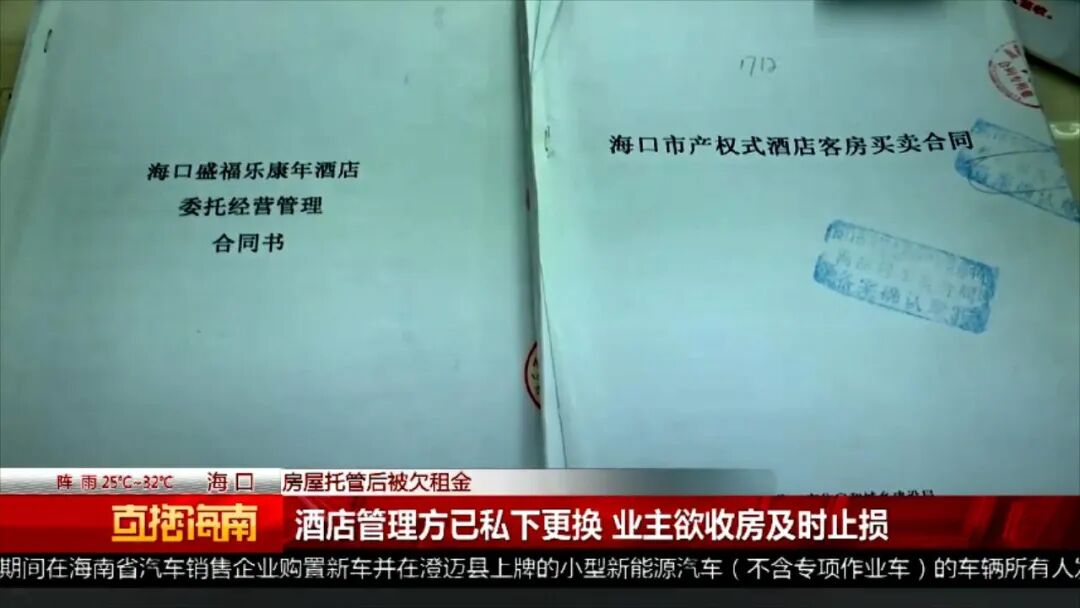 1712
海口盛福乐康年酒店
委托经营管理
合同书
海口市产权式酒店客房买卖合同
阵 雨 25℃~32℃ 海口
房屋托管后被欠租金
直播海南
酒店管理方已私下更换 业主欲收房及时止损
期间在海南省汽车销售企业购置新车并在澄迈县上牌的小型新能源汽车（不含专项作业车）的车辆所有人